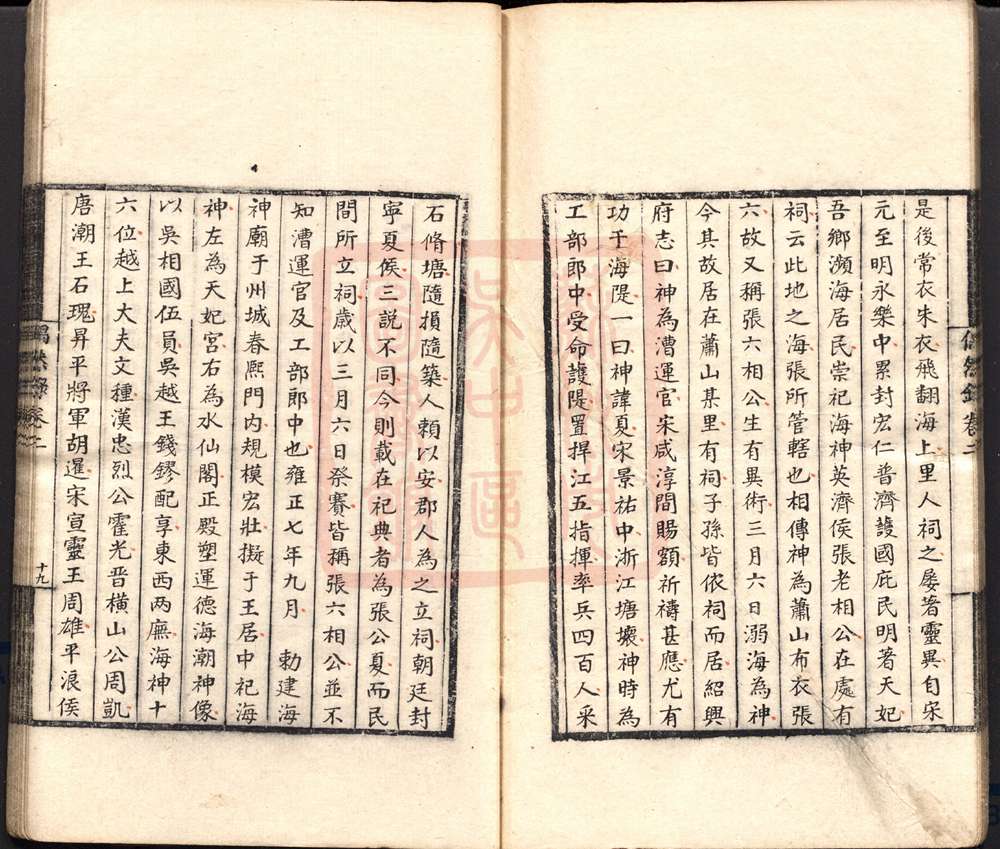 是後常衣朱衣飛翻海上里人祠之屡著靈異自宋
元至明永樂中累封宏仁普濟護國庇民明著天妃
吾鄉瀕海居民崇祀海神英濟侯張老相公在處有
祠云此地之海張所管轄也相傳神為蕭山布衣張
六故又稱張六相公生有異術三月六日溺海為神
今其故居在蕭山某里有祠子孫皆依祠而居紹興
府志曰神為漕運官宋咸淳間賜額祈禱甚應尤有
功于海隄一曰神諱夏宋景祐中浙江塘壞神時為
工部郎中受命護隄置捍江五指揮率兵四百人采
偶然錄卷二
石脩塘隨損隨築人賴以安郡人為之立祠朝廷封
寧夏侯三說不同今則載在祀典者為張公夏而民
間所立祠歲以三月六日祭賽皆稱張六相公並不
知漕運官及工部郎中也雍正七年九月　勅建海
神廟于州城春熈門内規模宏壯擬于王居中祀海
神左為天妃宮右為水仙閣正殿塑運德海潮神像
以吳相國伍員吳越王錢鏐配享東西两廡海神十
六位越上大夫文種漢忠烈公霍光晋橫山公周凱
唐潮王石瑰昇平將軍胡暹宋宣靈王周雄平浪侯
偶然錄卷二
十九